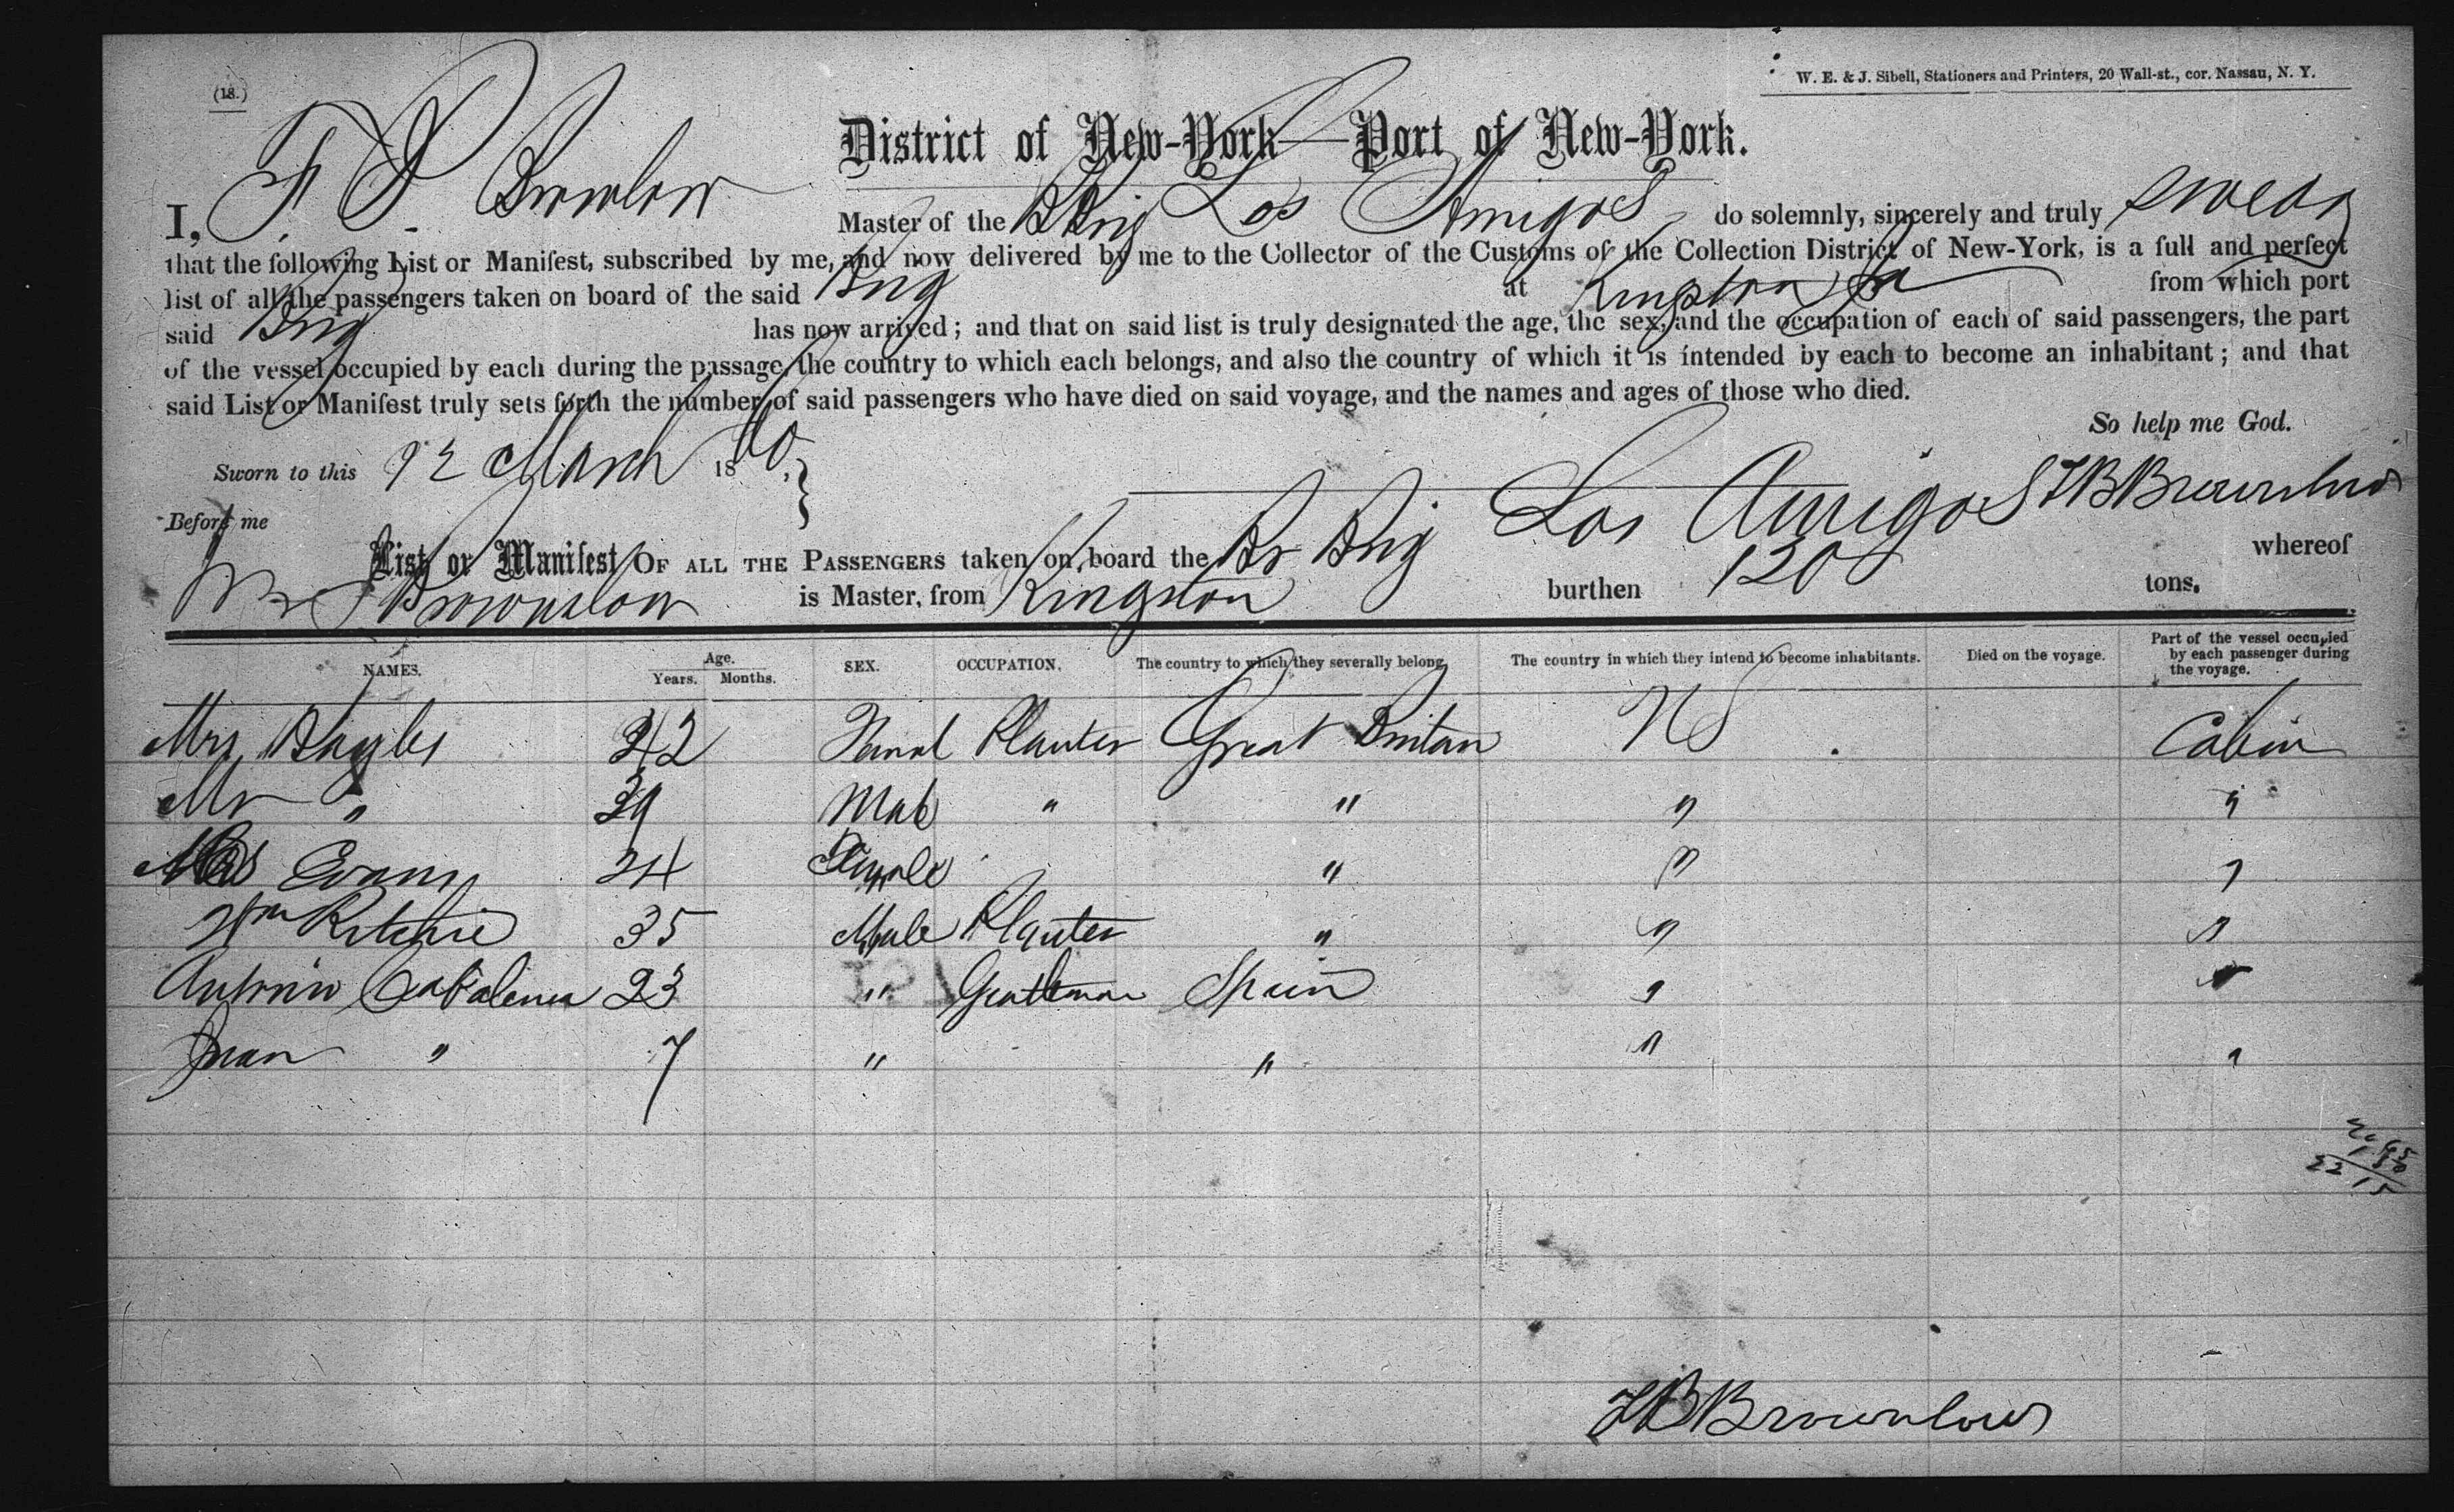 (18.)
W. E. & J. Sibell, Stationers and Printers, 20 Wall-st., cor. Nassau, N. Y.
District of New-York—Port of New-York.
I, Brownlow Master of the Brig Los Amigos do solemnly, sincerely and truly swear
that the following List or Manifest, subscribed by me, and now delivered by me to the Collector of the Customs of the Collection District of New-York, is a full and perfect
list of all the passengers taken on board of the said Brig at Kingston Ja from which port
said Brig has now arrived; and that on said list is truly designated the age, the sex, and the occupation of each of said passengers, the part
of the vessel occupied by each during the passage, the country to which each belongs, and also the country of which it is intended by each to become an inhabitant; and that
said List or Manifest truly sets forth the number of said passengers who have died on said voyage, and the names and ages of those who died.
So help me God.
Sworn to this March 18
Before me
Brownlow
List or Manifest OF ALL THE PASSENGERS taken on board the Br Brig Los Amigos whereof
Brownlow is Master, from Kingston burthen 120 tons.
NAMES. Age. Years. Months. SEX. OCCUPATION. The country to which they severally belong. The country in which they intend to become inhabitants. Died on the voyage. Part of the vessel occupied by each passenger during the voyage.
Mrs Femal Planter Great Britan Cabin
Mr " 39 Male " " " "
Evans 24 Female " " "
Wm Ritchie 35 Male Planter " " "
Antonio 23 " Gentleman Spain " "
Juan " 7 " " " "
Brownlow